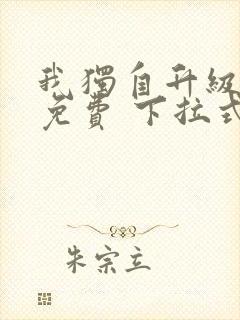 我獨自升級
免費 下拉式
朱宗立